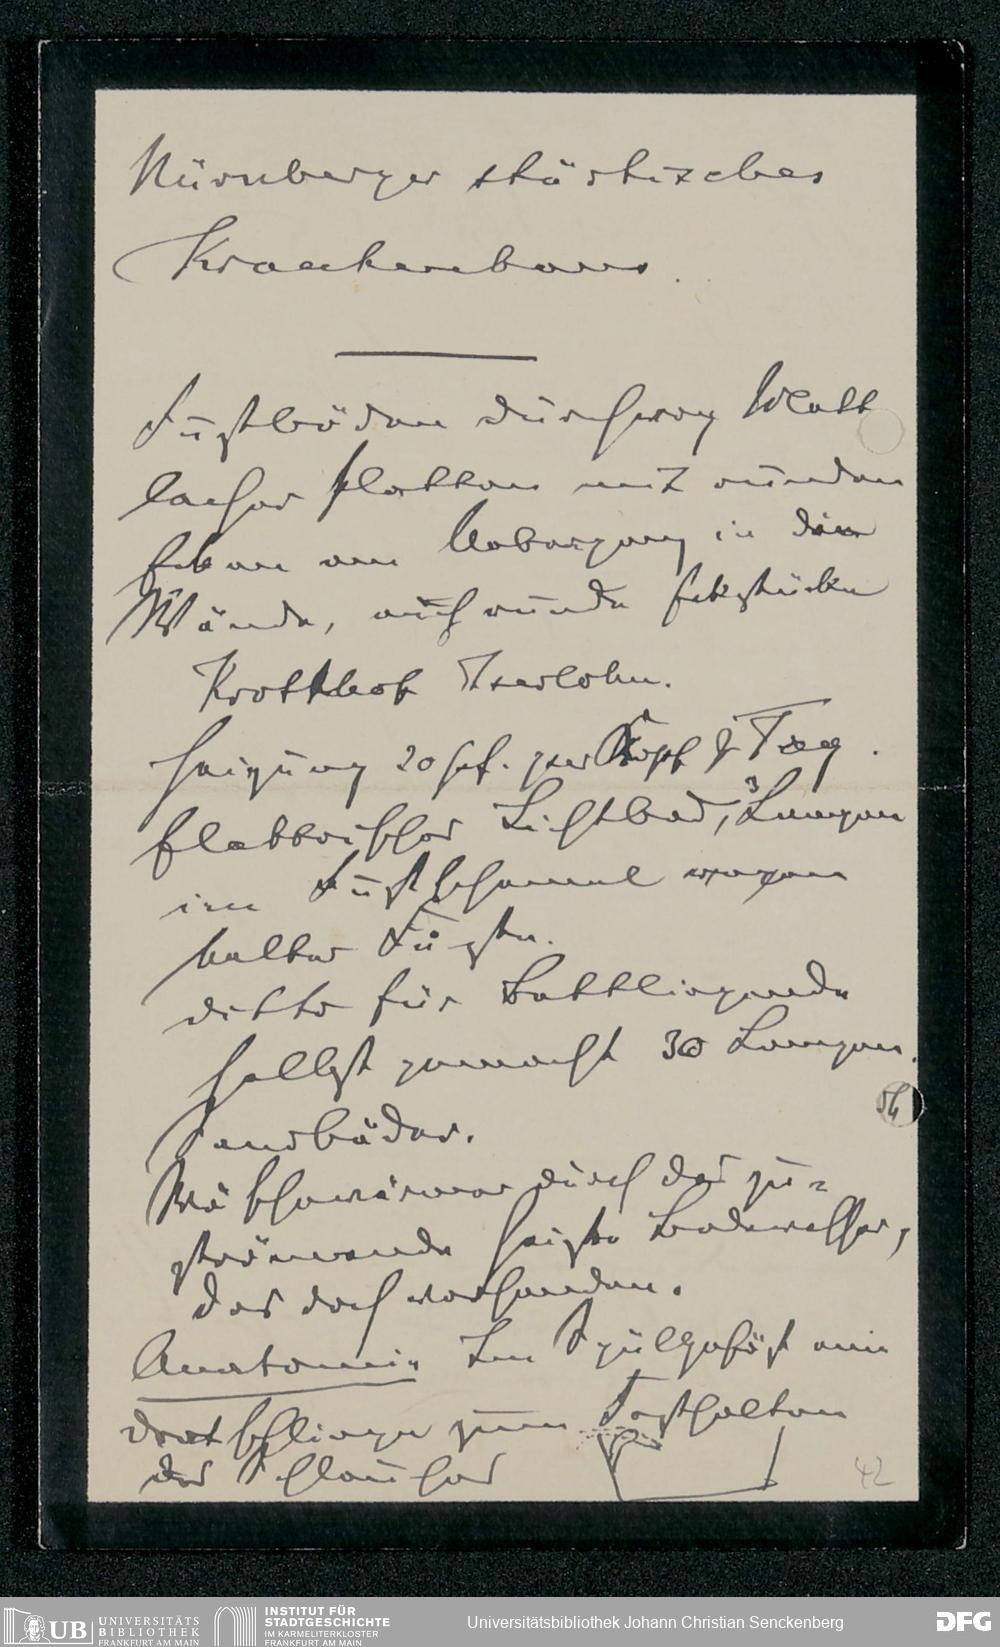 Nürnberger städtisches
Krankenhaus.
Fußböden durchweg Mett
lacher Platten mit runden
Ecken am Uebergang in die
Wände, auch runde Eckstücke
Iserlohn.
Heizung 20 Pf. per Kopf & Tag.
Elektrisches Lichtbad, 3 Lampen
im Fußschemel wegen
kalter Füße.
ditto für Bettliegende
selbst gemacht 30 Lampen.
Sandbäder.
Wäschewärmer durch das zu=
strömende heiße Badewasser,
das doch vorhanden.
Anatomie Im Spülgefäß ein
Drat schlinge zum Festhalten
des Schlauches
42
UB UNIVERSITÄTS
BIBLIOTHEK
FRANKFURT AM MAIN
INSTITUT FÜR
STADTGESCHICHTE
IM KARMELITERKLOSTER
FRANKFURT AM MAIN
Universitätsbibliothek Johann Christian Senckenberg
DFG